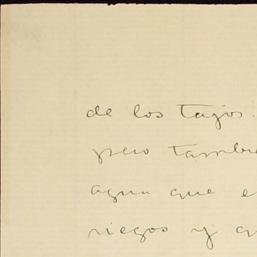 de los tajos.
pero tambié
agua que e
riegos y q